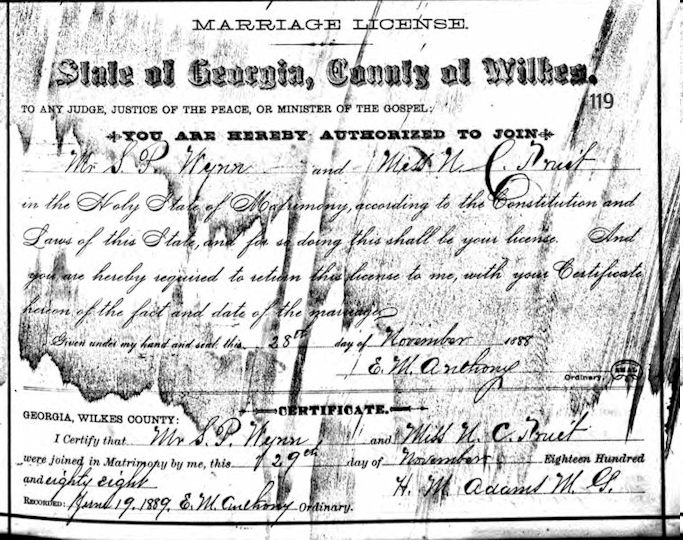 MARRIAGE LICENSE.
State of Georgia, County of Wilkes.
119
TO ANY JUDGE, JUSTICE OF THE PEACE, OR MINISTER OF THE GOSPEL:
YOU ARE HEREBY AUTHORIZED TO JOIN
Mr S. P. Wynn and Miss N. C. Truit
in the Holy State of Matrimony, according to the Constitution and
Laws of this State, and for so doing this shall be your license. And
you are hereby required to return this license to me, with your Certificate
hereon of the fact and date of the marriage.
Given under my hand and seal, this 28th day of November 1888
E. M. Anthony
Ordinary.
SEAL
CERTIFICATE.
GEORGIA, WILKES COUNTY:
I Certify that Mr S. P. Wynn and Miss N. C. Truit
were joined in Matrimony by me, this 29th day of November Eighteen Hundred
and eighty eight H. M. Adams M. G.
RECORDED: June 19. 1889. E. M. Anthony Ordinary.